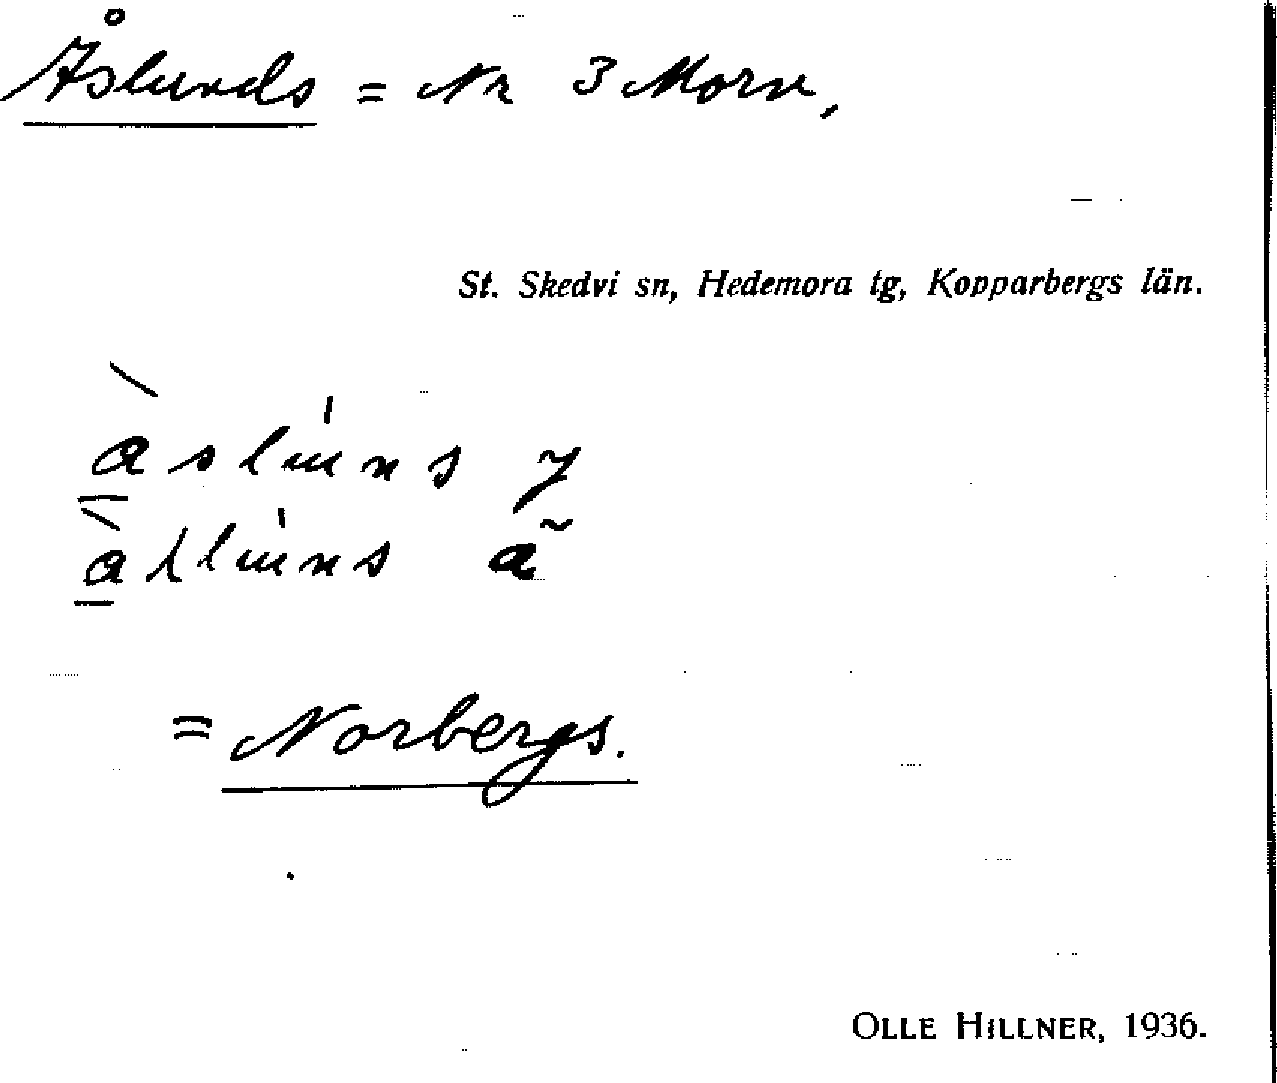 Åslunds = Nr 3 Morn,
St. Skedvi sn, Hedemora tg, Kopparbergs län.
= Norbergs.
OLLE HILLNER, 1936.